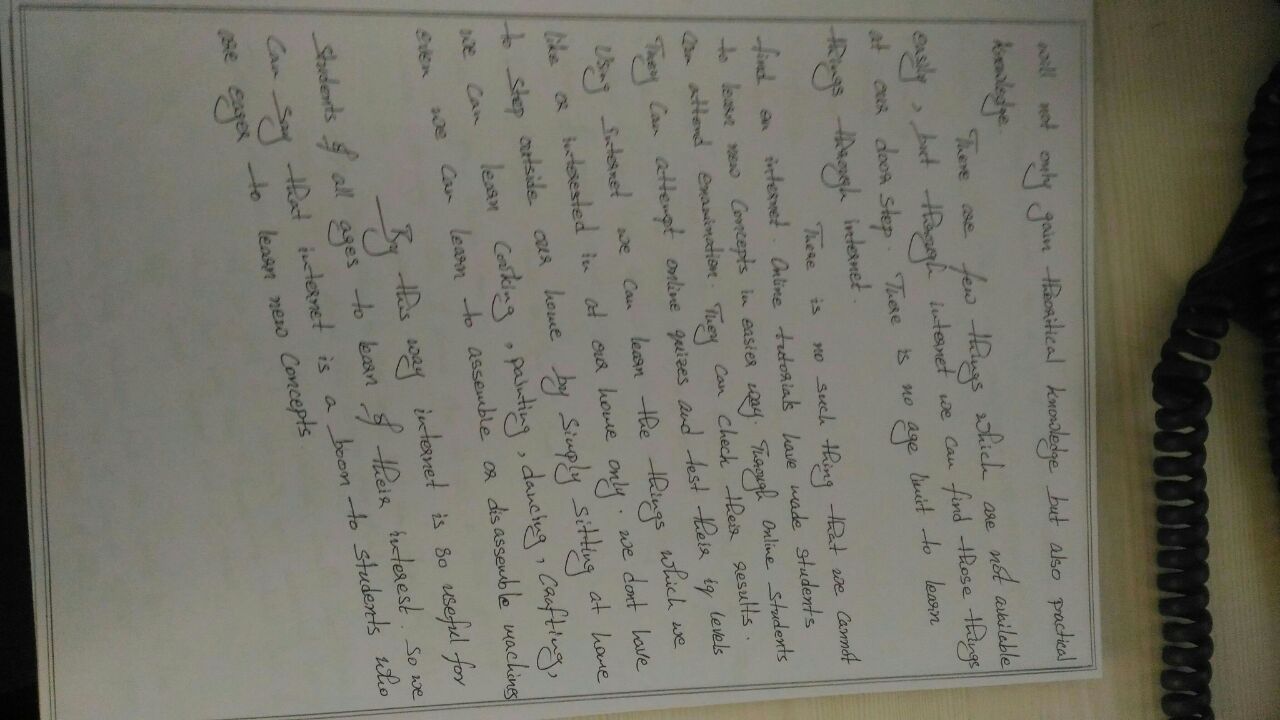 will not only gain theoritical knowledge but also practical
knowledge.
There are few things which are not available
easily, but through internet we can find those things
at our door step. There is no age limit to learn
things through internet.
There is no such thing that we cannot
find on internet. Online tutorials have made students
to learn new concepts in easier way. Through online students
can attend examination. They can check their results.
They can attempt online quizes and test their iq levels
Using internet we can learn the things which we
like or interested in at our home only. we dont have
to step outside our home by simply sitting at home
we can learn cooking, painting, dancing, crafting,
even we can learn to assemble or disassemble machines
By this way internet is so useful for
students of all ages to learn of their interest. So we
can say that internet is a boom to students who
are eager to learn new concepts.